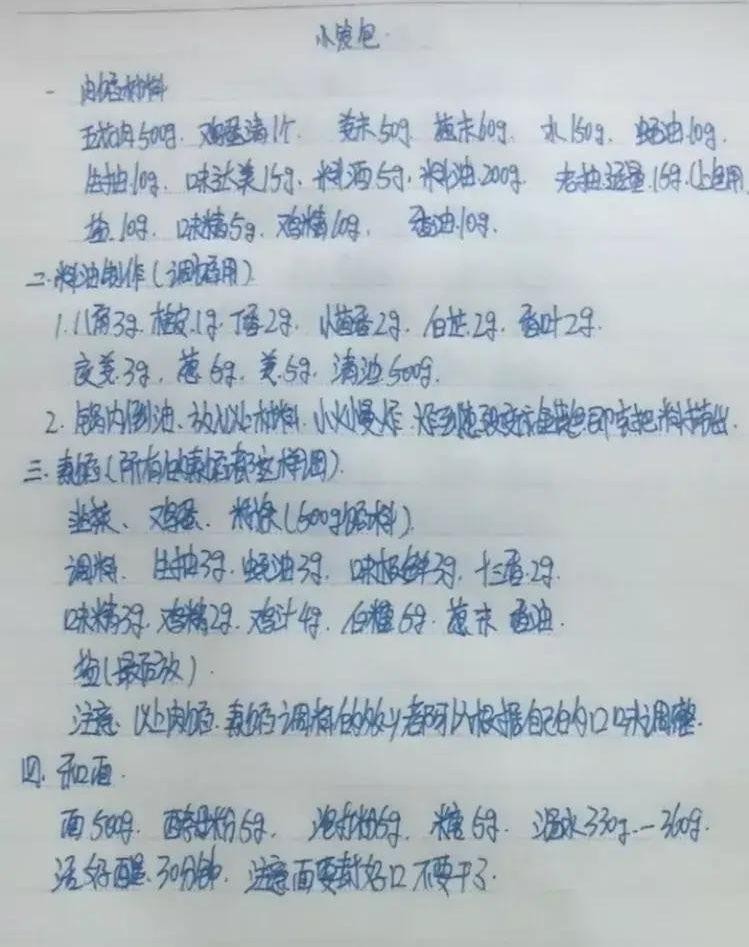 小笼包
一 肉馅材料
五花肉500g. 鸡蛋清1个. 姜末50g. 葱末60g. 水150g. 蚝油10g.
生抽10g. 味达美15g. 料酒5g. 料油200g. 老抽适量.15g.(上色用
盐.10g. 味精5g. 鸡精10g. 香油10g.
二.料油制作(调馅用)
1.八角3g.桂皮.1g.丁香2g. 小茴香2g. 白芷.2g. 香叶2g.
良姜.3g. 葱.6g. 姜.5g. 清油.500g.
2. 锅内倒油、放入以上材料.小火慢炸.炸到葱段变成金黄色即可把料捞出.
三.素馅(所有的素馅都这样调).
韭菜、鸡蛋、粉条(500g馅料).
调料. 生抽3g.蚝油3g. 味极鲜3g. 十三香.2g.
味精3g.鸡精2g.鸡汁4g.白糖6g.葱末 香油.
盐(最后放).
注意. 以上肉馅.素馅调料的多少都可以根据自己的口味调整.
四. 和面.
面500g. 酵母粉5g. 泡打粉5g. 糖5g. 温水330g.—360g.
活好醒.30分钟. 注意面要封好口不要干了.